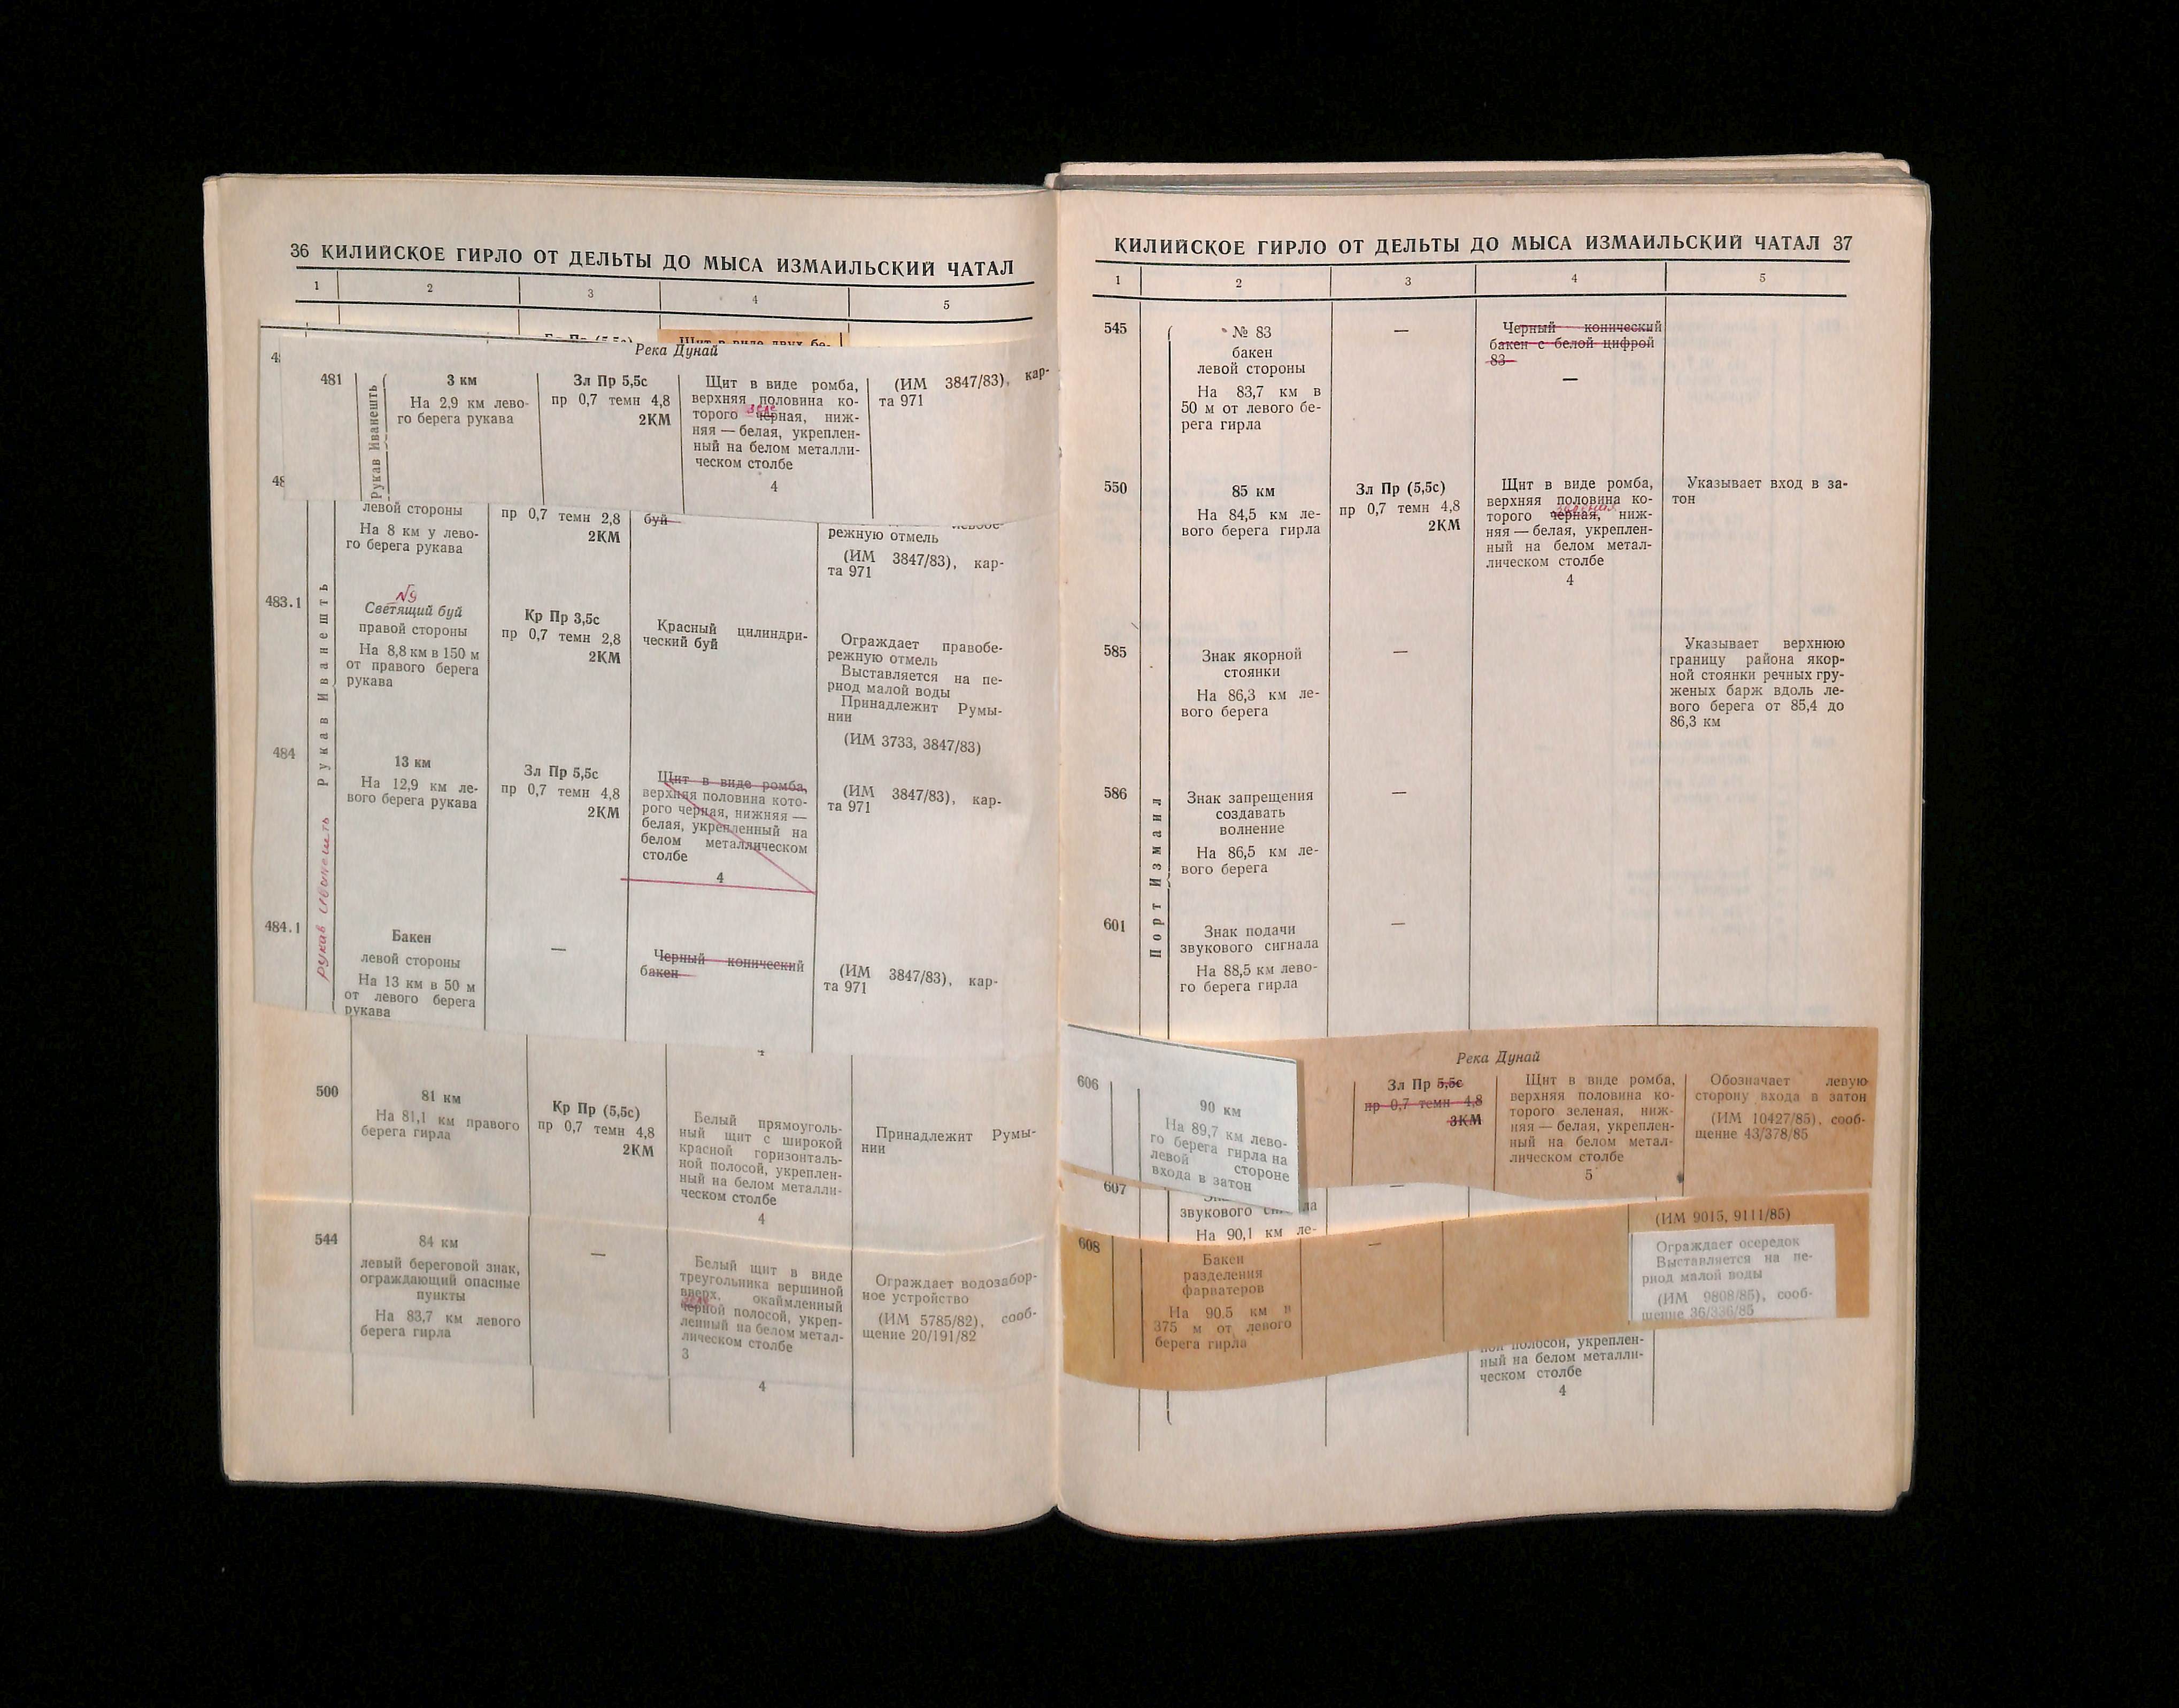 36 КИЛИЙСКОЕ ГИРЛО ОТ ДЕЛЬТЫ ДО МЫСА ИЗМАИЛЬСКИЙ ЧАТАЛ
1
2
3
4
5
Река Дунай
481
Рукав Иванешть
3 км
На 2,9 км лево-
го берега рукава
Зл Пр 5,5с
пр 0,7 темн 4,8
2КМ
Щит в виде ромба,
верхняя половина ко-
торого черная, ниж-
зеле
няя — белая, укреплен-
ный на белом металли-
ческом столбе
4
(ИМ 3847/83), кар-
та 971
левой стороны
На 8 км у лево-
го берега рукава
пр 0,7 темн 2,8
2КМ
буй
режную отмель
(ИМ 3847/83), кар-
та 971
Рукав Иванешть
рукав Иванешть
483.1
№9
Светящий буй
правой стороны
На 8,8 км в 150 м
от правого берега
рукава
Кр Пр 3,5с
пр 0,7 темн 2,8
2КМ
Красный цилиндри-
ческий буй
Ограждает правобе-
режную отмель
Выставляется на пе-
риод малой воды
Принадлежит Румы-
нии
(ИМ 3733, 3847/83)
484
13 км
На 12,9 км ле-
вого берега рукава
Зл Пр 5,5с
пр 0,7 темн 4,8
2КМ
Щит в виде ромба,
верхняя половина кото-
рого черная, нижняя —
белая, укрепленный на
белом металлическом
столбе
4
(ИМ 3847/83), кар-
та 971
484.1
Бакен
левой стороны
На 13 км в 50 м
от левого берега
рукава
—
Черный конический
бакен
(ИМ 3847/83), кар-
та 971
500
81 км
На 81,1 км правого
берега гирла
Кр Пр (5,5с)
пр 0,7 темн 4,8
2КМ
Белый прямоуголь-
ный щит с широкой
красной горизонталь-
ной полосой, укреплен-
ный на белом металли-
ческом столбе
4
Принадлежит Румы-
нии
544
84 км
левый береговой знак,
ограждающий опасные
пункты
На 83,7 км левого
берега гирла
—
Белый щит в виде
треугольника вершиной
вверх, окаймленный
черной полосой, укреп-
ленный на белом метал-
лическом столбе
3
4
Ограждает водозабор-
ное устройство
(ИМ 5785/82), сооб-
щение 20/191/82
КИЛИЙСКОЕ ГИРЛО ОТ ДЕЛЬТЫ ДО МЫСА ИЗМАИЛЬСКИЙ ЧАТАЛ 37
1
2
3
4
5
545
№ 83
бакен
левой стороны
На 83,7 км в
50 м от левого бе-
рега гирла
—
Черный конический
бакен с белой цифрой
83
—
550
85 км
На 84,5 км ле-
вого берега гирла
Зл Пр (5,5с)
пр 0,7 темн 4,8
2КМ
Щит в виде ромба,
верхняя половина ко-
торого черная, ниж-
зеленая
няя — белая, укреплен-
ный на белом метал-
лическом столбе
4
Указывает вход в за-
тон
585
Знак якорной
стоянки
На 86,3 км ле-
вого берега
—
Указывает верхнюю
границу района якор-
ной стоянки речных гру-
женых барж вдоль ле-
вого берега от 85,4 до
86,3 км
Порт Измаил
586
Знак запрещения
создавать
волнение
На 86,5 км ле-
вого берега
—
601
Знак подачи
звукового сигнала
На 88,5 км лево-
го берега гирла
—
Река Дунай
606
90 км
На 89,7 км лево-
го берега гирла на
левой стороне
входа в затон
Зл Пр 5,5с
пр 0,7 темн 4,8
3КМ
Щит в виде ромба,
верхняя половина ко-
торого зеленая, ниж-
няя — белая, укреплен-
ный на белом метал-
лическом столбе
5
Обозначает левую
сторону входа в затон
(ИМ 10427/85), сооб-
щение 43/378/85
607
звукового
На 90,1 км ле-
—
608
Бакен
разделения
фарватеров
На 90.5 км в
375 м от левого
берега гирла
—
(ИМ 9015, 9111/85)
Ограждает осередок
Выставляется на пе-
риод малой воды
(ИМ 9808/85), сооб-
щение 36/336/85
ной полосой, укреплен-
ный на белом металли-
ческом столбе
4